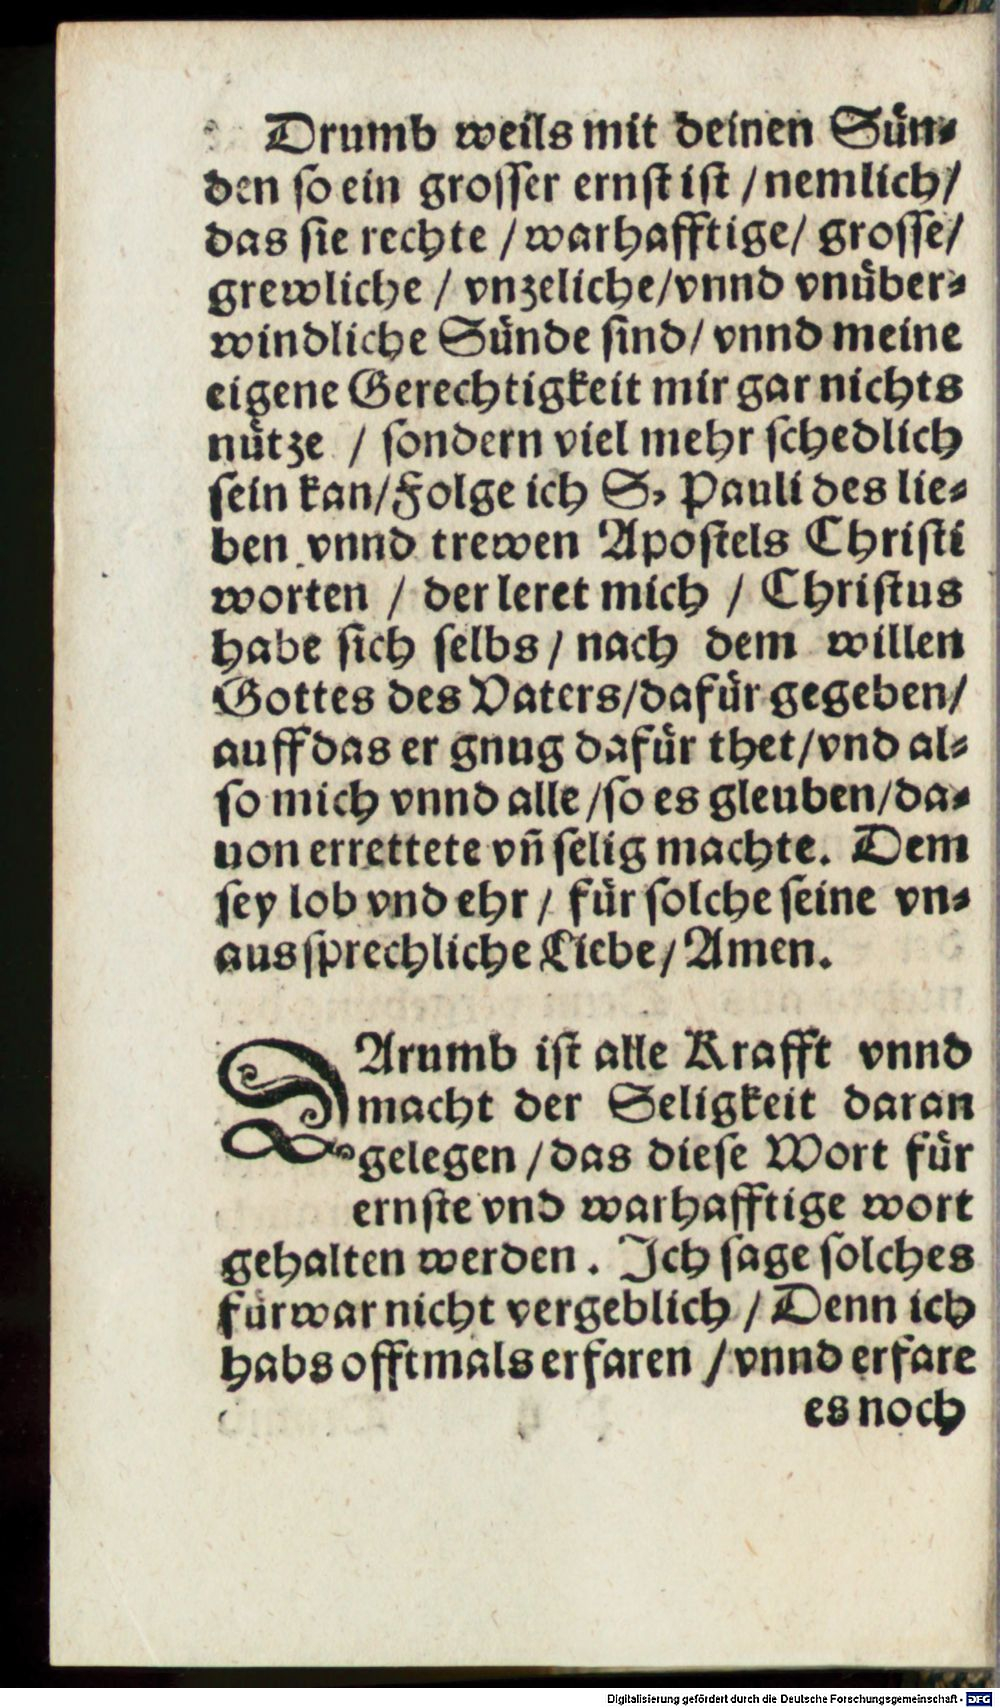 Drumb weils mit deinen Suͤn⸗
den so ein grosser ernst ist / nemlich /
das sie rechte / warhafftige / grosse /
grewliche / vnzeliche / vnnd vnuͤber⸗
windliche Suͤnde sind / vnnd meine
eigene Gerechtigkeit mir gar nichts
nuͤtze / sondern viel mehr schedlich
sein kan / Folge ich S, Pauli des lie⸗
ben vnnd trewen Apostels Christi
worten / der leret mich / Christus
habe sich selbs / nach dem willen
Gottes des Vaters / dafuͤr gegeben /
auff das er gnug dafuͤr thet / vnd al⸗
so mich vnnd alle / so es gleuben / da⸗
uon errettete vn̄ selig machte. Dem
sey lob vnd ehr / fuͤr solche seine vn⸗
aussprechliche Liebe / Amen.
DArumb ist alle Krafft vnnd
macht der Seligkeit daran
gelegen / das diese Wort fuͤr
ernste vnd warhafftige wort
gehalten werden. Ich sage solches
fuͤrwar nicht vergeblich / Denn ich
habs offtmals erfaren / vnnd erfare
es noch
Digitalisierung gefördert durch die Deutsche Forschungsgemeinschaft - DFG